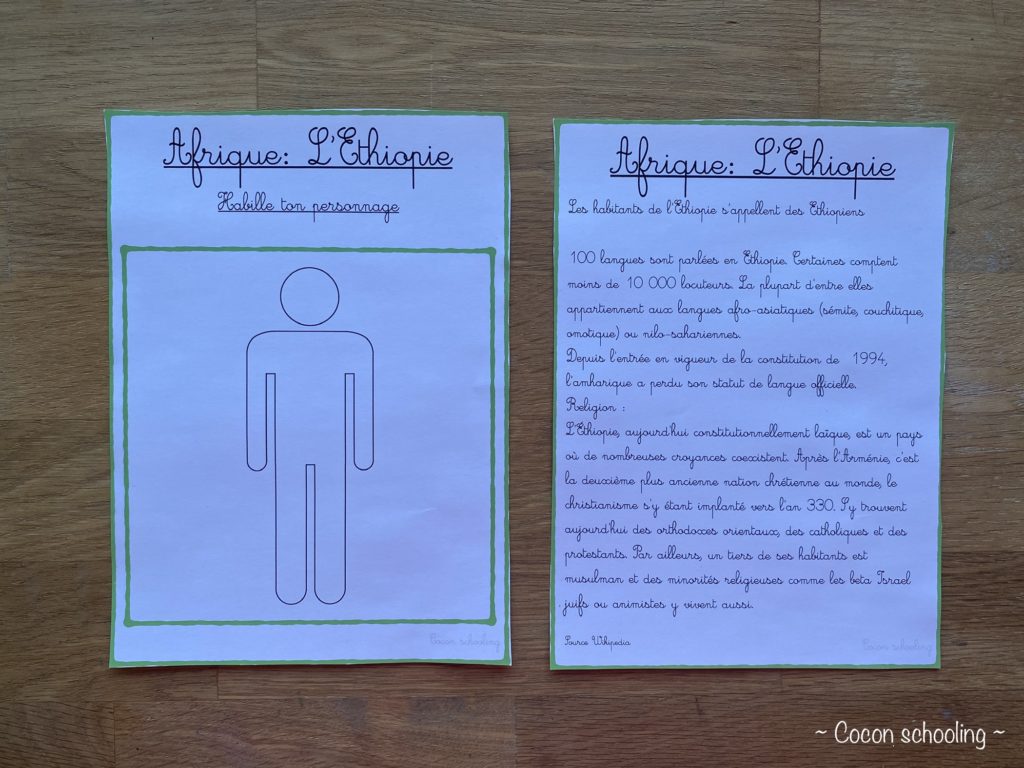 Afrique: L'Ethiopie
Habille ton personnage
Cocon schooling
Afrique: L'Ethiopie
Les habitants de l'Ethiopie s'appellent des Ethiopiens
100 langues sont parlées en Ethiopie. Certaines comptent
moins de 10 000 locuteurs. La plupart d'entre elles
appartiennent aux langues afro-asiatiques (sémite, couchitique,
omotique) ou nilo-sahariennes.
Depuis l'entrée en vigueur de la constitution de 1994,
l'amharique a perdu son statut de langue officielle.
Religion :
L'Ethiopie, aujourd'hui constitutionnellement laïque, est un pays
où de nombreuses croyances coexistent. Après l'Arménie, c'est
la deuxième plus ancienne nation chrétienne au monde, le
christianisme s'y étant implanté vers l'an 330. S'y trouvent
aujourd'hui des orthodoxes orientaux, des catholiques et des
protestants. Par ailleurs, un tiers de ses habitants est
musulman et des minorités religieuses comme les beta Israel
juifs ou animistes y vivent aussi.
Source Wikipedia
Cocon schooling
~ Cocon schooling ~